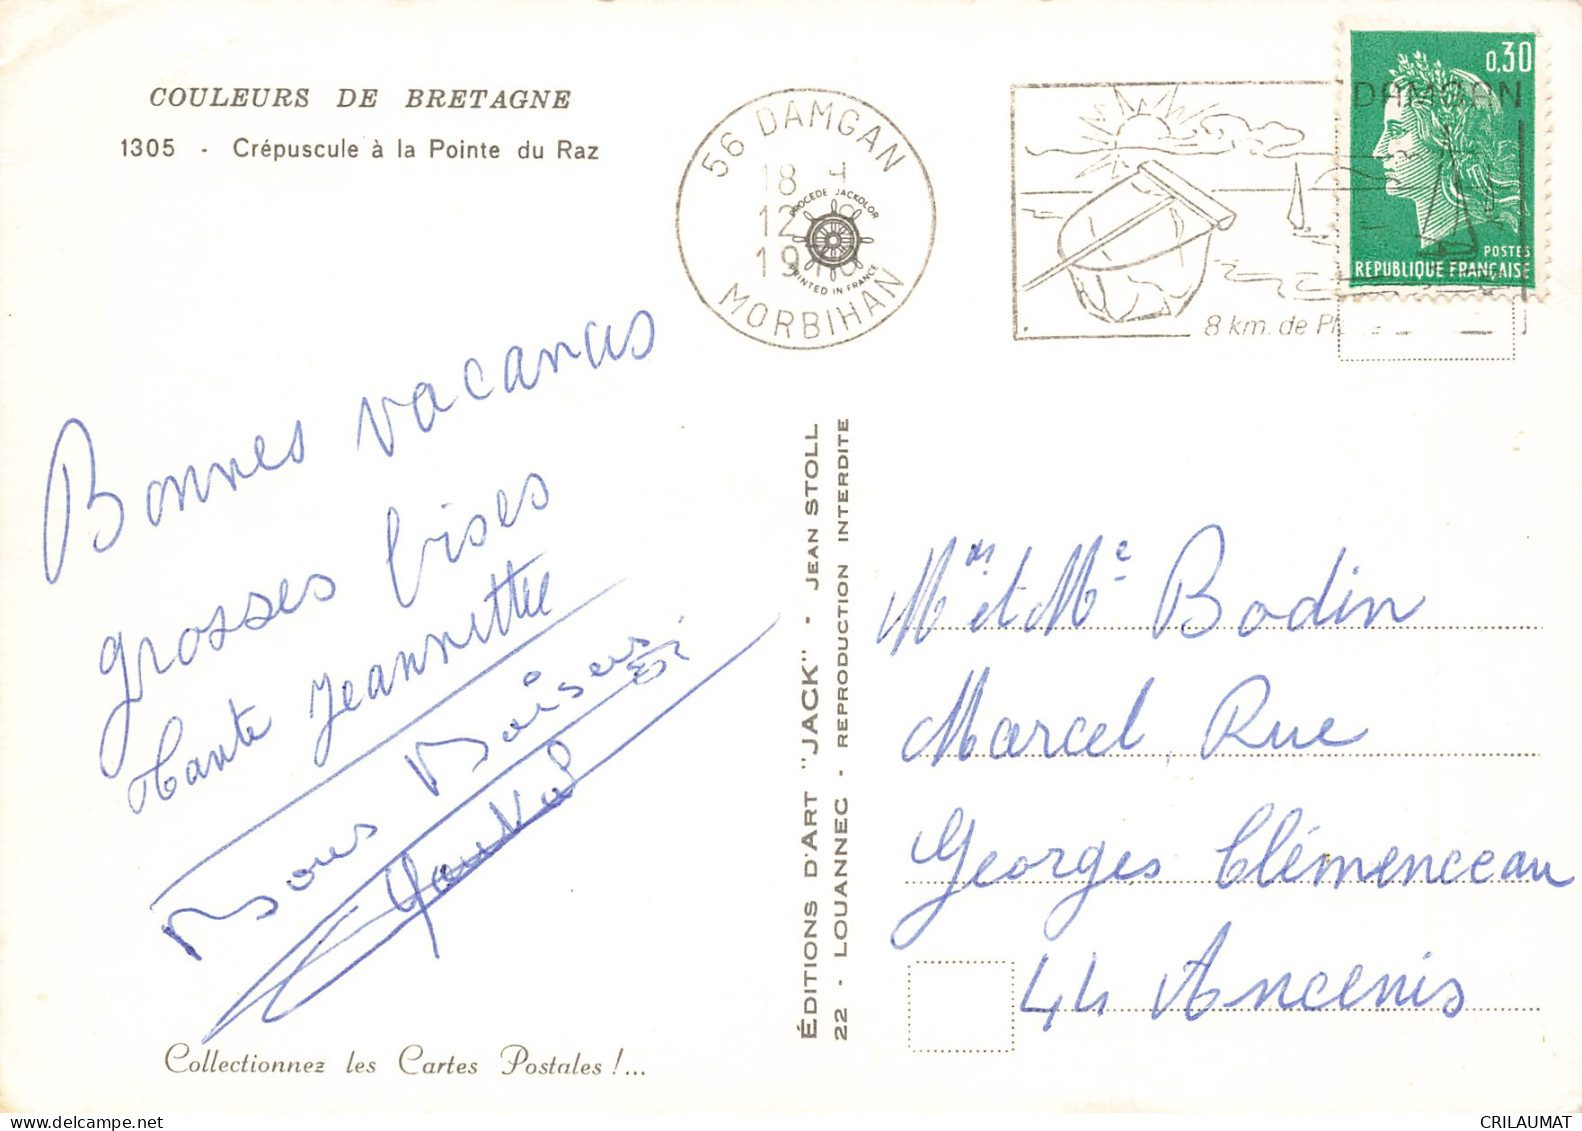 COULEURS DE BRETAGNE
1305 - Crépuscule à la Pointe du Raz
Bonnes vacances
grosses bises
Tante Jeannette
Bons Baisers
Collectionnez les Cartes Postales !...
56 DAMGAN
18 H
12
19
MORBIHAN
PROCEDE JACKOLOR
PRINTED IN FRANCE
DAMGAN
8 km. de
0,30
POSTES
REPUBLIQUE FRANÇAISE
ÉDITIONS D'ART "JACK" - JEAN STOLL
22 - LOUANNEC - REPRODUCTION INTERDITE
Mr et Me Bodin
Marcel, Rue
Georges Clémenceau
44 Ancenis
CRILAUMAT